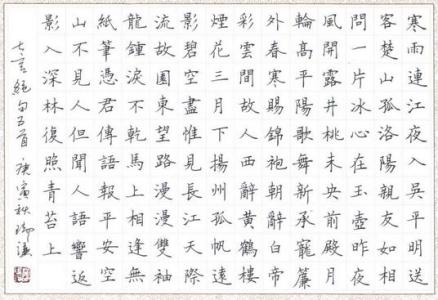 寒雨連江夜入吳平明送
客楚山孤洛陽親友如相
問一片冰心在玉壺昨夜
風開露井桃未央前殿月
輪高平陽歌舞新承寵簾
外春寒賜錦袍朝辭白帝
彩雲間故人西辭黃鶴樓
煙花三月下揚州孤帆遠
影碧空盡惟見長江天際
流故園東望路漫漫雙袖
龍鍾淚不乾馬上相逢無
紙筆憑君傳語報平安空
山不見人但聞人語響返
影入深林復照青苔上
七言絕句五首 庚寅秋